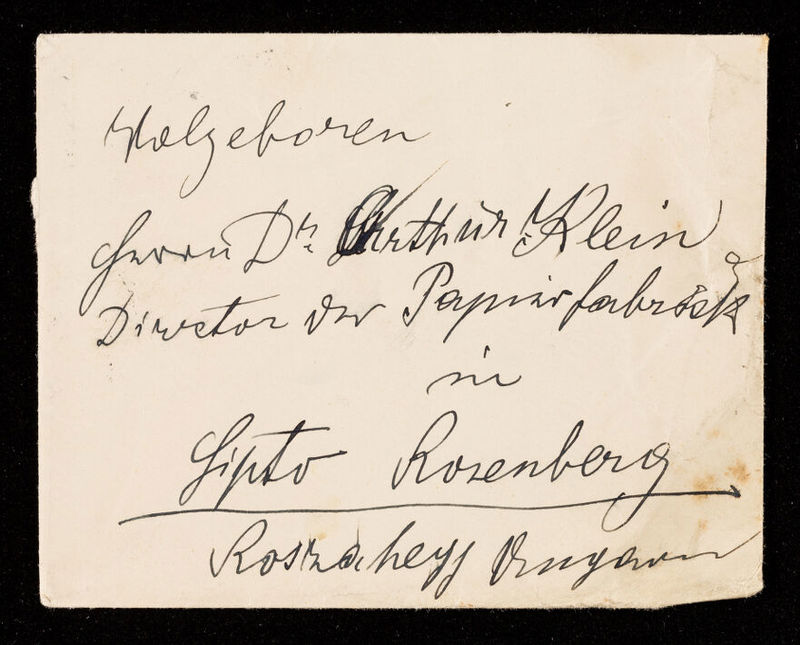 Wolgeboren
Herrn Dr. Arthur Klein
Director der Papierfabrick
in
Lipto Rosenberg
Roszahegy Ungarn